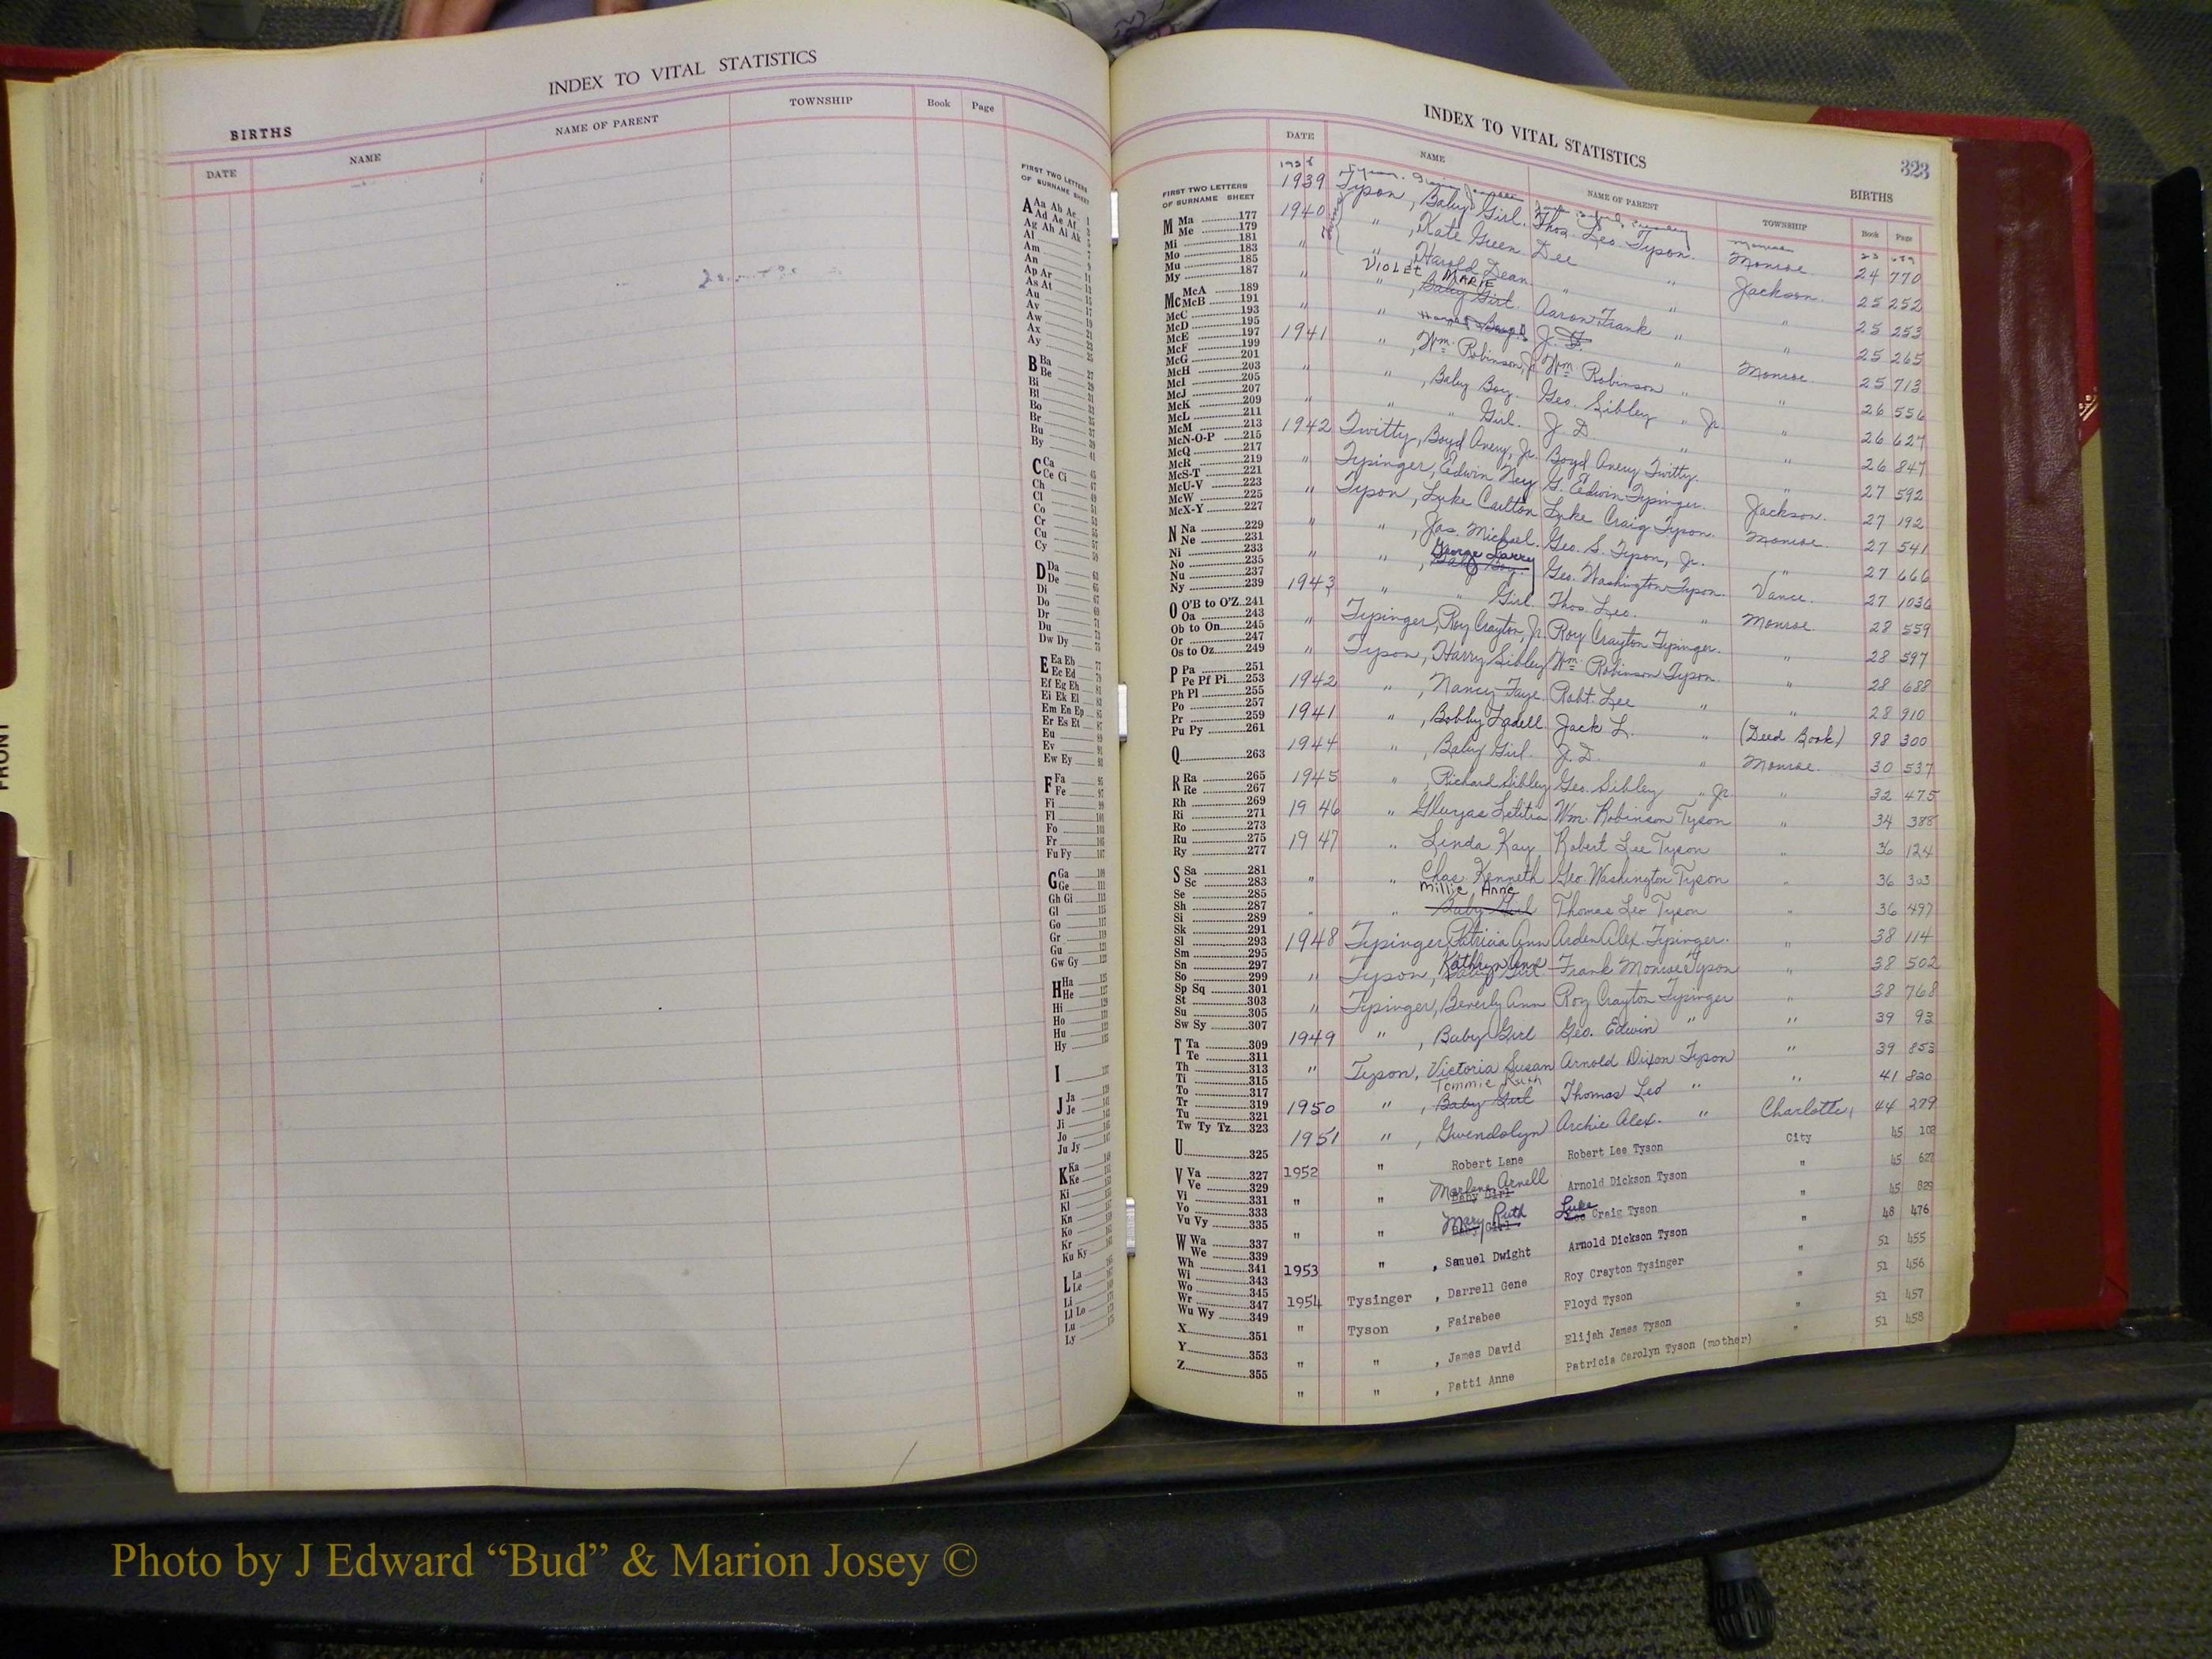 INDEX TO VITAL STATISTICS
BIRTHS
DATE NAME NAME OF PARENT TOWNSHIP Book Page
FIRST TWO LETTERS
OF SURNAME SHEET
A Aa Ab Ac
Ad Ae Af
Ag Ah Ai Ak
Al
Am
An
Ap Ar
As At
Au
Av
Aw
Ax
Ay
B Ba
Be
Bi
Bl
Bo
Br
Bu
By
C Ca
Ce Ci
Ch
Cl
Co
Cr
Cu
Cy
D Da
De
Di
Do
Dr
Du
Dw Dy
E Ea Eb
Ec Ed
Ef Eg Eh
Ei Ek El
Em En Ep
Er Es Et
Eu
Ev
Ew Ey
F Fa
Fe
Fi
Fl
Fo
Fr
Fu Fy
G Ga
Ge
Gh Gi
Gl
Go
Gr
Gu
Gw Gy
H Ha
He
Hi
Ho
Hu
Hy
I
J Ja
Je
Ji
Jo
Ju Jy
K Ka
Ke
Ki
Kl
Kn
Ko
Kr
Ku Ky
L La
Le
Li
Ll Lo
Lu
Ly
FRONT
INDEX TO VITAL STATISTICS
323
BIRTHS
DATE NAME NAME OF PARENT TOWNSHIP Book Page
FIRST TWO LETTERS
OF SURNAME SHEET
M Ma 177
Me 179
Mi 181
Mo 183
Mu 185
My 187
Mc McA 189
McB 191
McC 193
McD 195
McE 197
McF 199
McG 201
McH 203
McI 205
McJ 207
McK 209
McL 211
McM 213
McN-O-P 215
McQ 217
McR 219
McS-T 221
McU-V 223
McW 225
McX-Y 227
N Na 229
Ne 231
Ni 233
No 235
Nu 237
Ny 239
O O'B to O'Z 241
Oa 243
Ob to On 245
Or 247
Os to Oz 249
P Pa 251
Pe Pf Pi 253
Ph Pl 255
Po 257
Pr 259
Pu Py 261
Q 263
R Ra 265
Re 267
Rh 269
Ri 271
Ro 273
Ru 275
Ry 277
S Sa 281
Sc 283
Se 285
Sh 287
Si 289
Sk 291
Sl 293
Sm 295
Sn 297
So 299
Sp Sq 301
St 303
Su 305
Sw Sy 307
T Ta 309
Te 311
Th 313
Ti 315
To 317
Tr 319
Tu 321
Tw Ty Tz 323
U 325
V Va 327
Ve 329
Vi 331
Vo 333
Vu Vy 335
W Wa 337
We 339
Wh 341
Wi 343
Wo 345
Wr 347
Wu Wy 349
X 351
Y 353
Z 355
Monroe 23
1939 Tyson, Baby Girl. Thos. Leo Tyson. Monroe 24 770
1940 " , Kate Green Dee " Jackson. 25 252
" " , Harold Dean " " " 25 253
VIOLET MARIE
" " , Baby Girl. Aaron Frank " " 25 265
" " Boyd J. " Monroe 25 713
1941 " , Wm. Robinson, Jr. Wm Robinson " " 26 556
" " , Baby Boy. Geo. Sibley " Jr. " 26 627
" " " Girl. J. D. " " 26 847
1942 Twitty, Boyd Avery, Jr. Boyd Avery Twitty. " 27 592
" Tysinger, Edwin Ney G. Edwin Tysinger. Jackson. 27 192
" Tyson, Luke Carlton Luke Craig Tyson. Monroe. 27 541
" " , Jas. Michael. Geo. S. Tyson, Jr. " 27 666
George Larry
" " , Baby Boy. Geo. Washington Tyson. Vance. 27 1036
1943 " " Girl. Thos. Leo. " Monroe. 28 559
" Tysinger, Roy Crayton, Jr. Roy Crayton Tysinger. " 28 597
" Tyson, Harry Sibley Wm. Robinson Tyson. " 28 688
1942 " , Nancy Faye. Robt. Lee " " 28 910
1941 " , Bobby Ladell. Jack L. " (Deed Book) 98 300
1944 " , Baby Girl. J. D. " Monroe. 30 537
1945 " , Richard Sibley Geo. Sibley " Jr. " 32 475
1946 " Letitia Wm. Robinson Tyson " 34 388
1947 " Linda Kay Robert Lee Tyson " 36 124
" " Chas. Kenneth Geo. Washington Tyson " 36 303
Millie Anne
" " Baby Girl Thomas Leo Tyson " 36 497
1948 Tysinger, Patricia Ann Arden Alex. Tysinger. " 38 114
Kathryn Anne
" Tyson, Baby Girl. Frank Monroe Tyson " 38 502
" Tysinger, Beverly Ann Roy Crayton Tysinger " 38 768
1949 " , Baby Girl Geo. Edwin " " 39 93
" Tyson, Victoria Susan Arnold Dixon Tyson " 39 853
Tommie Ruth
1950 " , Baby Girl Thomas Leo " " 41 820
1951 " , Gwendolyn Archie Alex. " Charlotte, 44 279
1952 " Robert Lane Robert Lee Tyson City 45 102
Marlene Arnell
" " Baby Girl Arnold Dickson Tyson " 45 627
Mary Ruth Luke
" " Baby Girl Craig Tyson " 45 829
1953 " , Samuel Dwight Arnold Dickson Tyson " 48 476
1954 Tysinger , Darrell Gene Roy Crayton Tysinger " 51 455
" Tyson , Fairabee Floyd Tyson " 51 456
" " , James David Elijah James Tyson " 51 457
" " , Patti Anne Patricia Carolyn Tyson (mother) " 51 458
Photo by J Edward “Bud” & Marion Josey ©